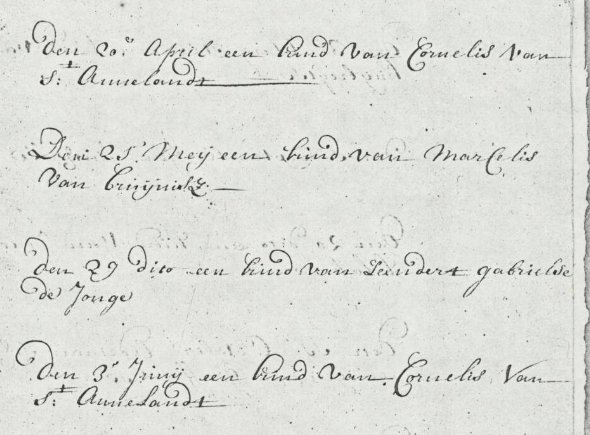 Den 20e April een kind van Cornelis van
st: Annelandt
Den 25e Meij een kind van Marcelis
van
Den 29 dito een kind van Leendert gabrielse
de Jonge
Den 3e Junij een kind van Cornelis Van
st: Annelandt